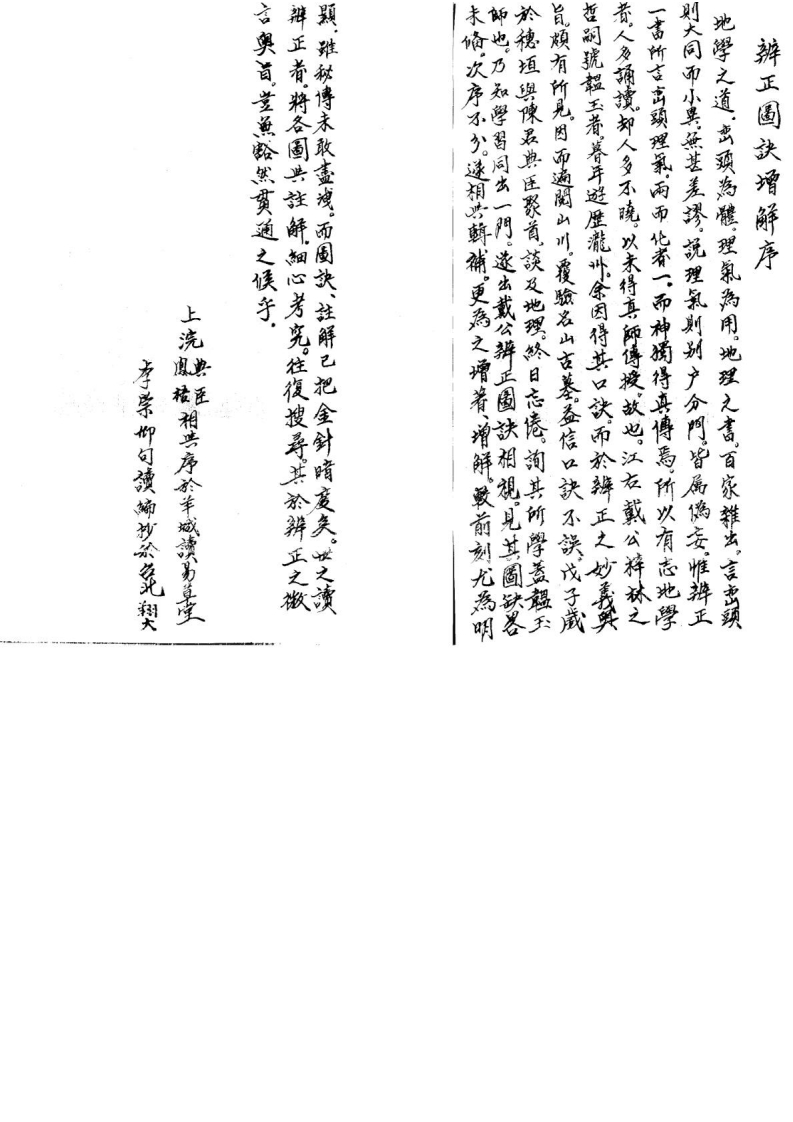 辨正圖訣增解序
地學之道、巒頭為體。理氣為用。地理之書。百家雜出。言巒頭
則大同而小異。無甚差謬。說理氣則別户分門。皆属偽妄。惟辨正
一書所言巒頭理氣。兩而化者一。而神獨得真傳焉。所以有志地學
者。人多誦讀。却人多不曉。以未得真師傳授。故也。江右戴公梓林之
哲嗣號韞玉者。暮年遊歷瀧州。余因得其口訣。而於辨正之妙義奧
旨。頗有所見。因而遍閱山川。覆驗名山古墓。益信口訣不誤。戊子歲
於穗垣與陳君典臣聚首。談及地理。終日忘倦。詢其所學蓋韞玉
師也。乃知學習同出一門。遂出戴公辨正圖訣相視。見其圖缺畧
未備。次序不分。遂相與輯補。更為之增著、增解。較前刻尤為明
顯、雖秘傳未敢盡洩。而圖訣、註解已把金針暗度矣。世之讀
辨正者。將各圖與註解。細心考究。往復搜尋。其於辨正之微
言奧旨。豈無豁然貫通之候乎。
上浣典臣鳳梧相與序於羊城讀易草堂
李崇仰句讀編抄於台北翔大